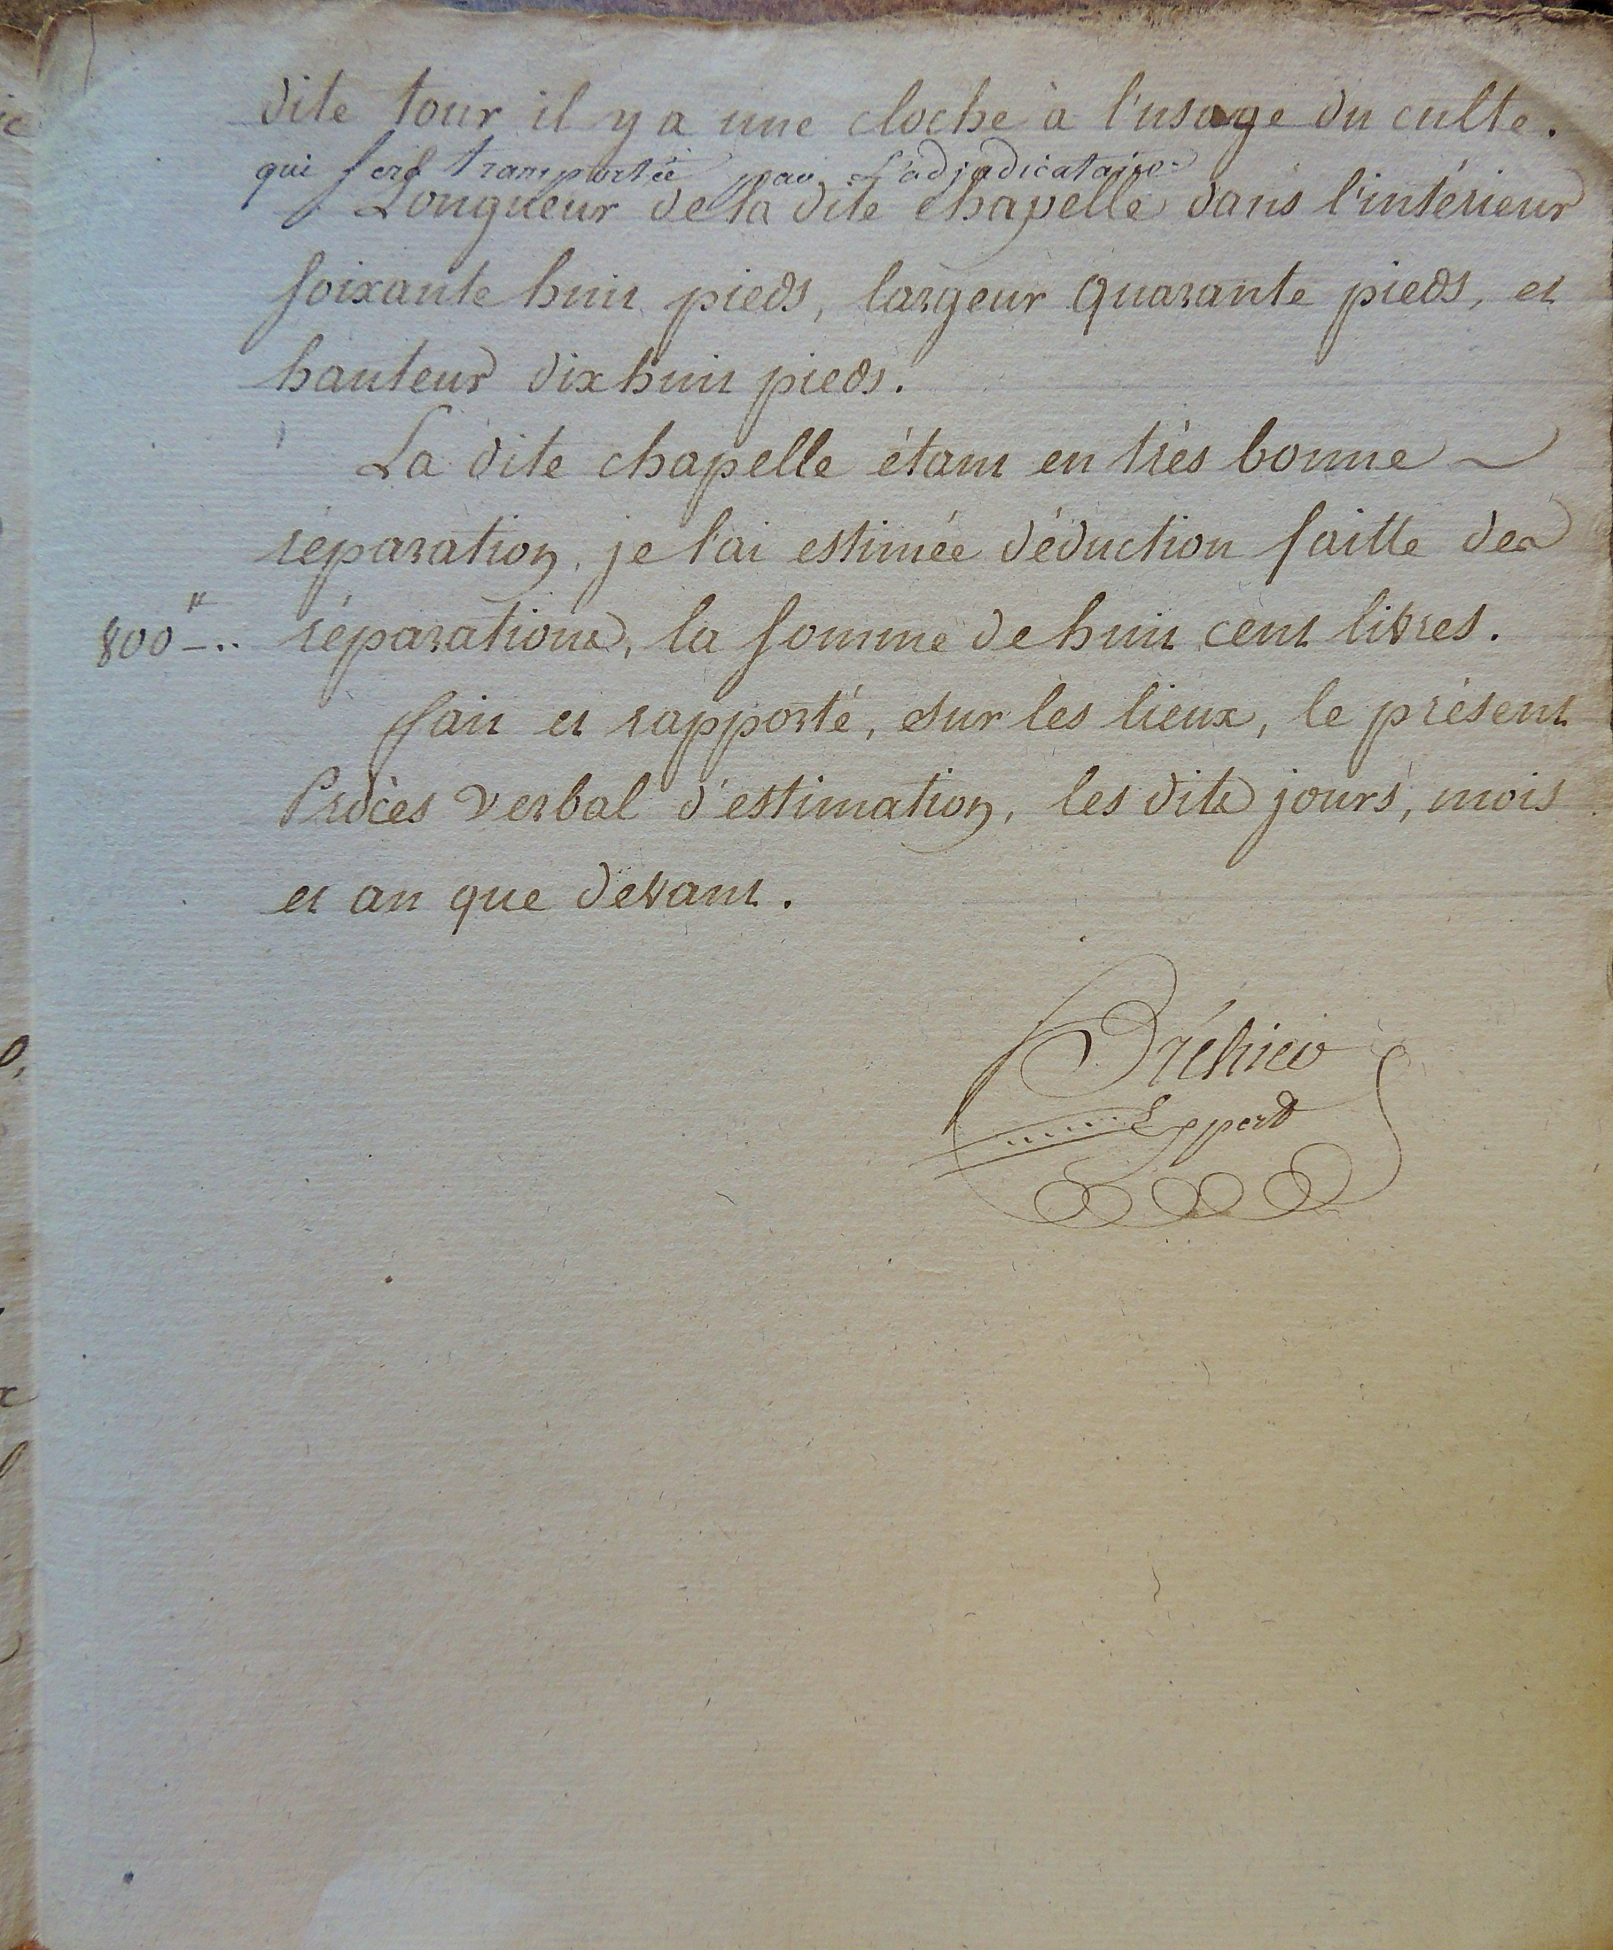 dite tour il y a une cloche à l'usage du culte.
qui sera transportée par l'adjudicataire
Longueur de la dite chapelle dans l'intérieur
soixante huit pieds, largeur quarante pieds, et
hauteur dix huit pieds.
La dite chapelle étant en très bonne
réparation, je l'ai estimée déduction faitte des
800" réparations, la somme de huit cent livres.
fait et rapporté, sur les lieux, le présent
Procès verbal d'estimation, les dits jours, mois
et an que devant.
Bréhier
Expert